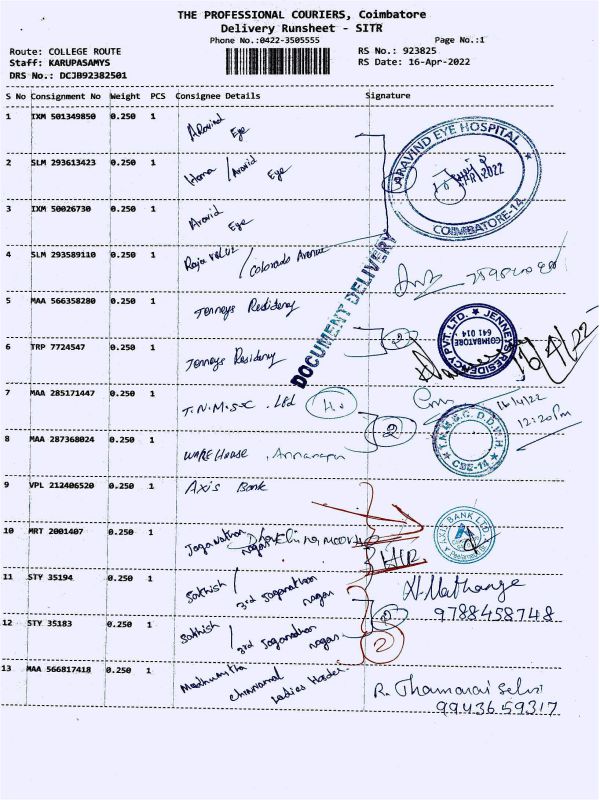 THE PROFESSIONAL COURIERS, Coimbatore
Delivery Runsheet - SITR
Phone No.:0422-3505555 Page No.:1
Route: COLLEGE ROUTE RS No.: 923825
Staff: KARUPASAMYS RS Date: 16-Apr-2022
DRS No.: DCJB92382501
S No Consignment No Weight PCS Consignee Details Signature
1 IXM 501349850 0.250 1 Aravind Eye
2 SLM 293613423 0.250 1 Hema / Aravid Eye
ARAVIND EYE HOSPITAL
COIMBATORE-14
3 IXM 50026730 0.250 1 Aravid Eye
4 SLM 293589110 0.250 1 Raja / Colorado Avenue
DOCUMENT DELIVERY
5 MAA 566358280 0.250 1 Jenneys Residency
JENNEYS RESIDENCY PVT. LTD.
COIMBATORE 641 014
6 TRP 7724547 0.250 1 Jenneys Residency 2
16/4/22
7 MAA 285171447 0.250 1 T.N.M.S.C. Ltd
16/4/22
12:20pm
8 MAA 287368024 0.250 1 WAREHOUSE, 2
T.N.M.S.C. D.D.W.H.
CBE-14
9 VPL 212406520 0.250 1 Axis Bank
AXIS BANK LTD
10 MRT 2001407 0.250 1 Jaganathan nagar
11 STY 35194 0.250 1 Sathish / 3rd Jaganathan nagar
9788458748
12 STY 35183 0.250 1 Sathish / 3rd Jaganathan nagar 2
2
13 MAA 566817418 0.250 1 Madhumitha Chinnamal Ladies Hostel
R. Thamarai Selvi
9943659317